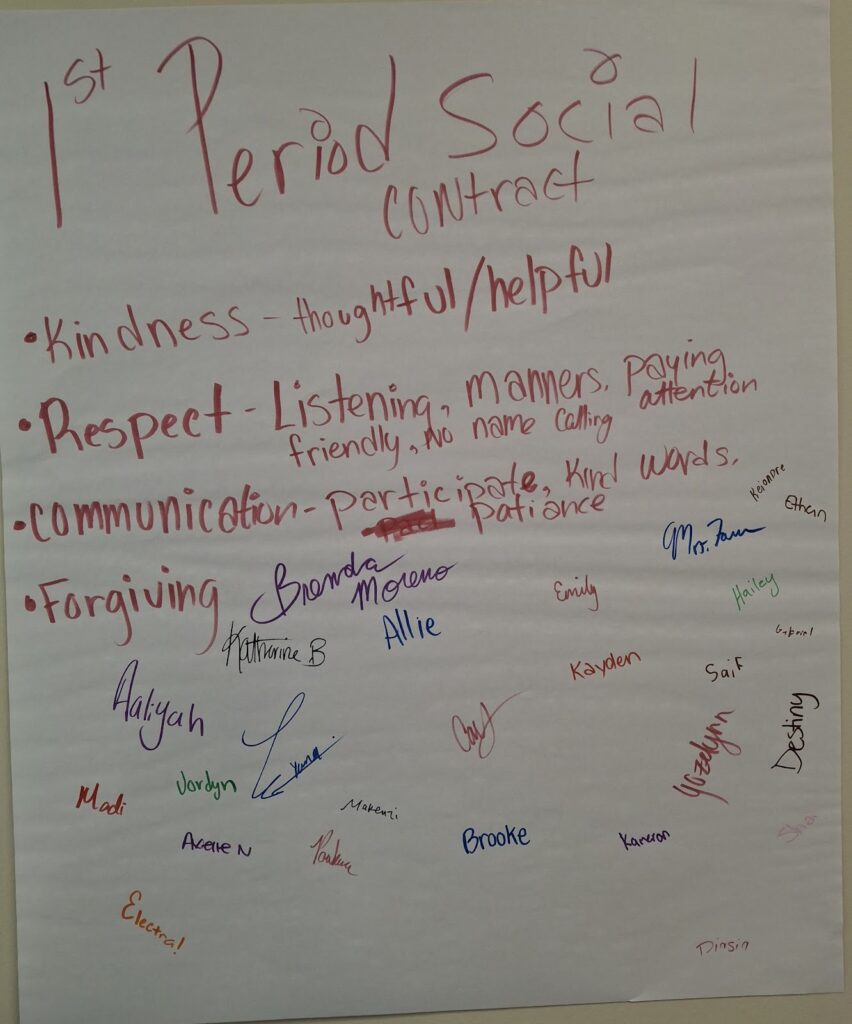 1st Period Social
contract
•Kindness - thoughtful/helpful
•Respect - Listening, manners, paying attention
friendly, No name calling
•communication - participate, kind words,
patiance
•Forgiving
Keionpre
Ethan
Mrs.
Brenda
Moreno
Emily
Hailey
Allie
Katharine B
Gabriel
Kayden
Saif
Aaliyah
Yozelynn
Destiny
Madi
Jordyn
Makenzi
Brooke
Kameron
Electra!
Dinsin